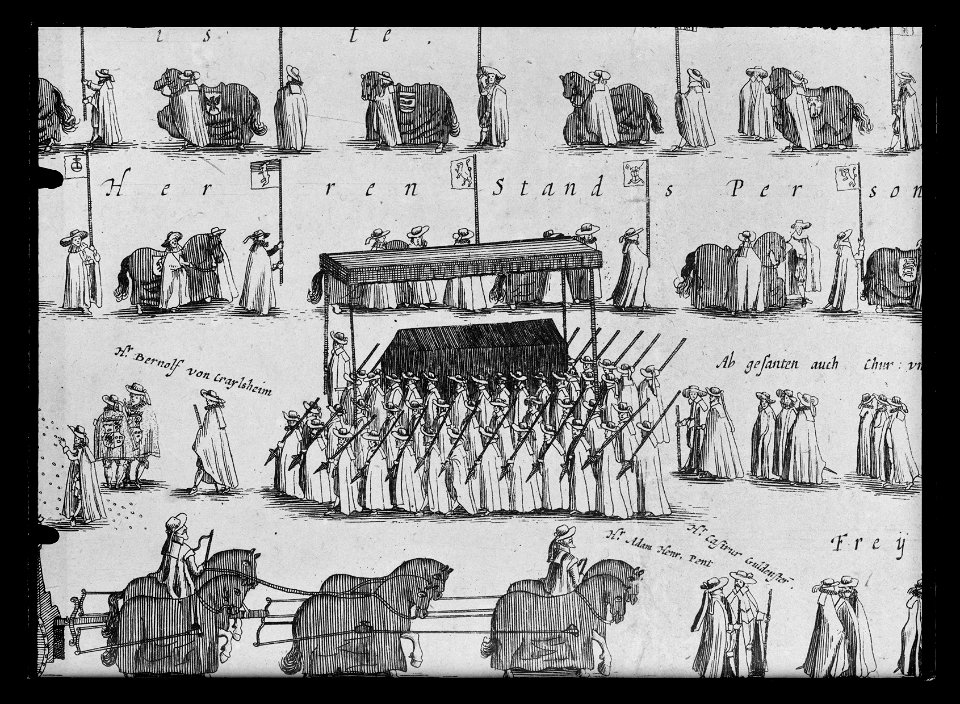 is te.
Herren Stands Person
Hr. Bernolf von Craylsheim
Abgesanten auch Chur: vn
Hr. Adam Henr. Pent
Hr. Casirus Guldenster.
Freÿ